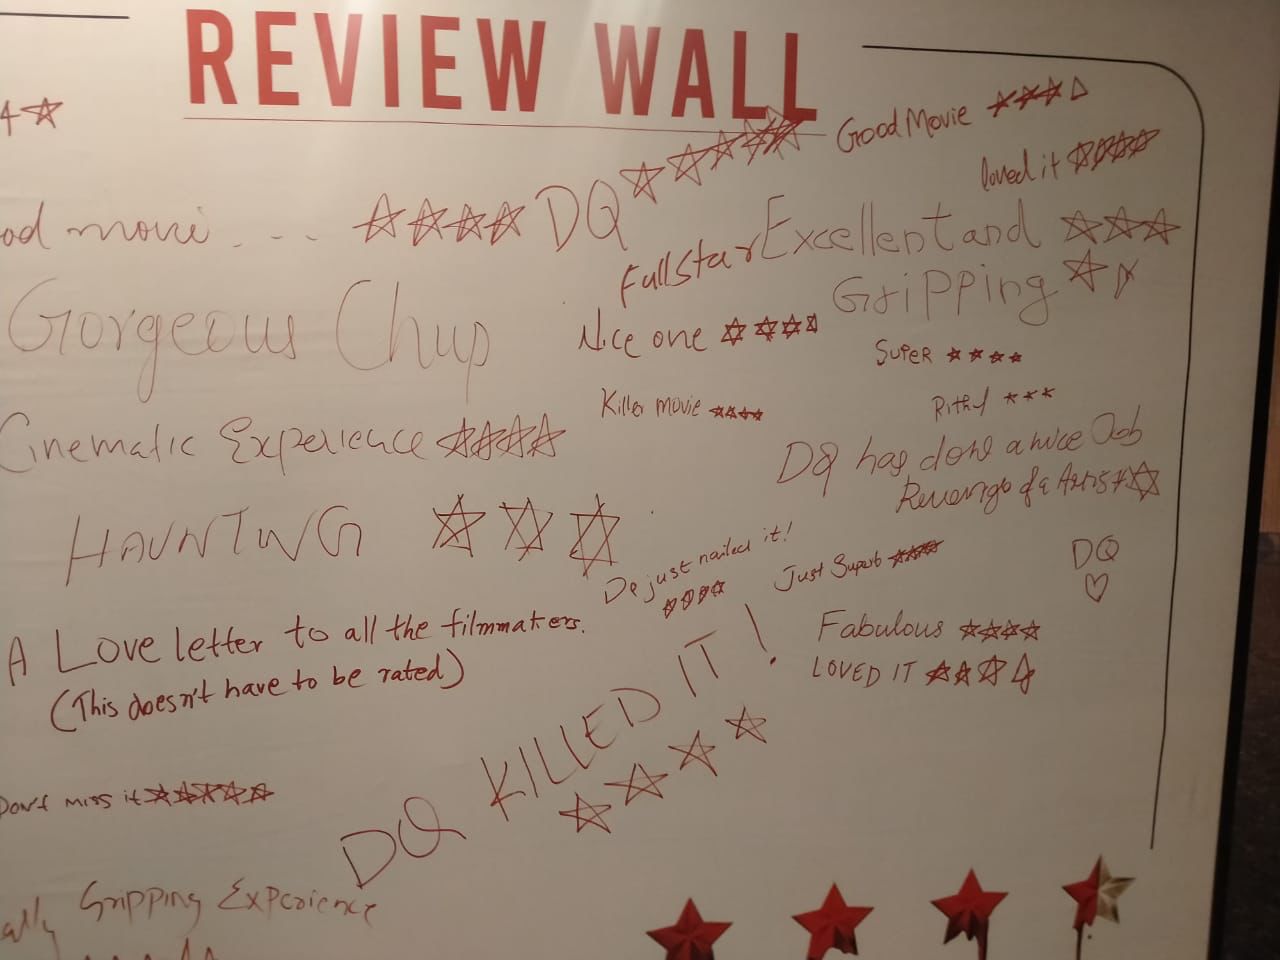 REVIEW WALL
4
Good Movie
loved it
od movie...
DQ
Full Star
Excellent and
Gripping
Gorgeous Chup
Nice one
SUPER
Killer movie
Cinematic Experience
DQ has done a nice Job
Revenge of a Artist
HAUNTING
just nailed it!
Just Superb
DQ
A Love letter to all the filmmakers.
(This doesn't have to be rated)
Fabulous
LOVED IT
DQ KILLED IT!
Don't miss it
ally Gripping Experience